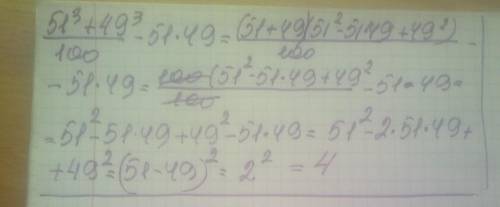 (51³ + 49³)/100 - 51·49 = (51+49)(51² - 51·49 + 49²)/100 -
- 51·49 = 100(51² - 51·49 + 49²/100 - 51·49 =
= 51² - 51·49 + 49² - 51·49 = 51² - 2·51·49 +
+ 49² = (51 - 49)² = 2² = 4